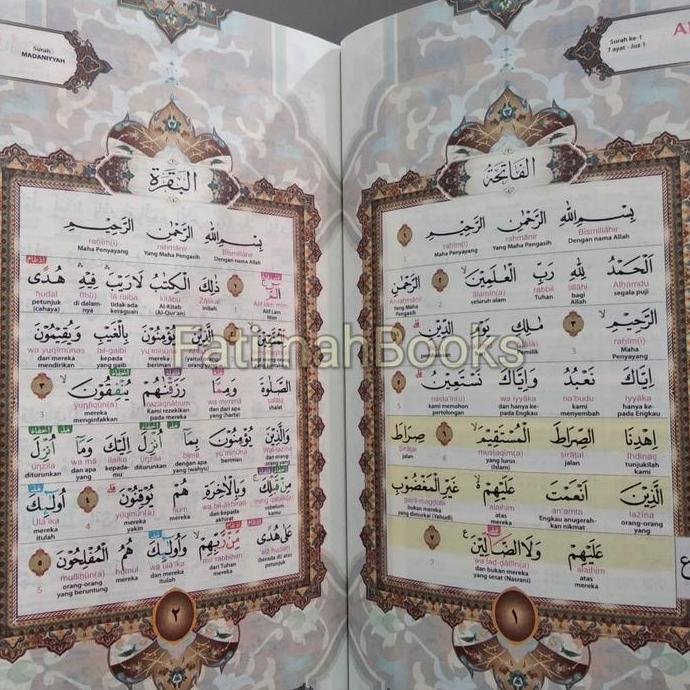 Surah ke-1
7 ayat - Juz 1
الفاتحة
بِسْمِ اللهِ الرَّحْمٰنِ الرَّحِيْمِ ١
Bismillāhir rahmānir rahīm(i)
Dengan nama Allah Yang Maha Pengasih Maha Penyayang
اَلْحَمْدُ لِلّٰهِ رَبِّ الْعٰلَمِيْنَ ٢ الرَّحْمٰنِ
Alhamdu lillāhi rabbil ‘ālamīn(a) Ar-rahmānir
segala puji bagi Allah Tuhan seluruh alam Yang Maha Pengasih
الرَّحِيْمِ ٣ مٰلِكِ يَوْمِ الدِّيْنِ
rahīm(i)
Maha Penyayang
اِيَّاكَ نَعْبُدُ وَاِيَّاكَ نَسْتَعِيْنُ ٥
iyyāka na'budu wa iyyāka nasta'īn(u)
hanya kepada Engkau kami menyembah dan hanya kepada Engkau kami mohon pertolongan
اِهْدِنَا الصِّرَاطَ الْمُسْتَقِيْمَ ٦ صِرَاطَ
Ihdinaṣ ṣirāṭal mustaqīm(a) Ṣirāṭal
tunjukilah kami jalan yang lurus (Islam) jalan
الَّذِيْنَ اَنْعَمْتَ عَلَيْهِمْ غَيْرِ الْمَغْضُوْبِ
lażīna an'amta alaihim gairil-magḍūbi
orang-orang Engkau anugerahkan nikmat atas mereka bukan mereka yang dimurkai (Yahudi)
عَلَيْهِمْ وَلَا الضَّاۤلِّيْنَ ٧
alaihim wa laḍ-ḍāllīn(a)
atas mereka dan bukan mereka yang sesat (Nasrani)
١
Surah :
MADANIYYAH
البقرة
بِسْمِ اللهِ الرَّحْمٰنِ الرَّحِيْمِ
Bismillāhir rahmānir rahīm(i)
Dengan nama Allah Yang Maha Pengasih Maha Penyayang
الۤمّۤ ١ ذٰلِكَ الْكِتٰبُ لَا رَيْبَ فِيْهِ هُدًى
Alif lām mīm Żālikal kitābu lā raiba fīh(i) hudal
Alif Lām Mīm Inilah Al-Kitab (Al-Qur'an) tidak ada keraguan di dalamnya petunjuk (cahaya)
لِّلْمُتَّقِيْنَ ٢ الَّذِيْنَ يُؤْمِنُوْنَ بِالْغَيْبِ وَيُقِيْمُوْنَ
yu'minūna bil-gaibi wa yuqīmūnaṣ
kepada yang gaib dan mereka mendirikan
الصَّلٰوةَ وَمِمَّا رَزَقْنٰهُمْ يُنْفِقُوْنَ ٣
ṣalāta wa mimmā razaqnāhum yunfiqūn(a)
shalat dan dari apa yang (harta) Kami rezekikan pada mereka mereka menginfakkan
وَالَّذِيْنَ يُؤْمِنُوْنَ بِمَآ اُنْزِلَ اِلَيْكَ وَمَآ اُنْزِلَ
Wal-lażīna yu'minūna bimā unzila ilaika wa mā unzila
dan orang-orang yang beriman dengan apa yang (wahyu) diturunkan kepadamu dan apa diturunkan
مِنْ قَبْلِكَ وَبِالْاٰخِرَةِ هُمْ يُوْقِنُوْنَ ٤ اُولٰۤىِٕكَ
wa bil-ākhirati hum yūqinūn(a) Ulā'ika
sebelum kamu dan kepada akhirat mereka yakin mereka itulah
عَلٰى هُدًى مِّنْ رَّبِّهِمْ وَاُولٰۤىِٕكَ هُمُ الْمُفْلِحُوْنَ ٥
alā hudam mir rabbihim wa ulā'ika humul mufliḥūn(a)
(berada di) atas petunjuk dari Tuhan mereka dan mereka itulah mereka orang-orang yang beruntung
٢
FatimahBooks